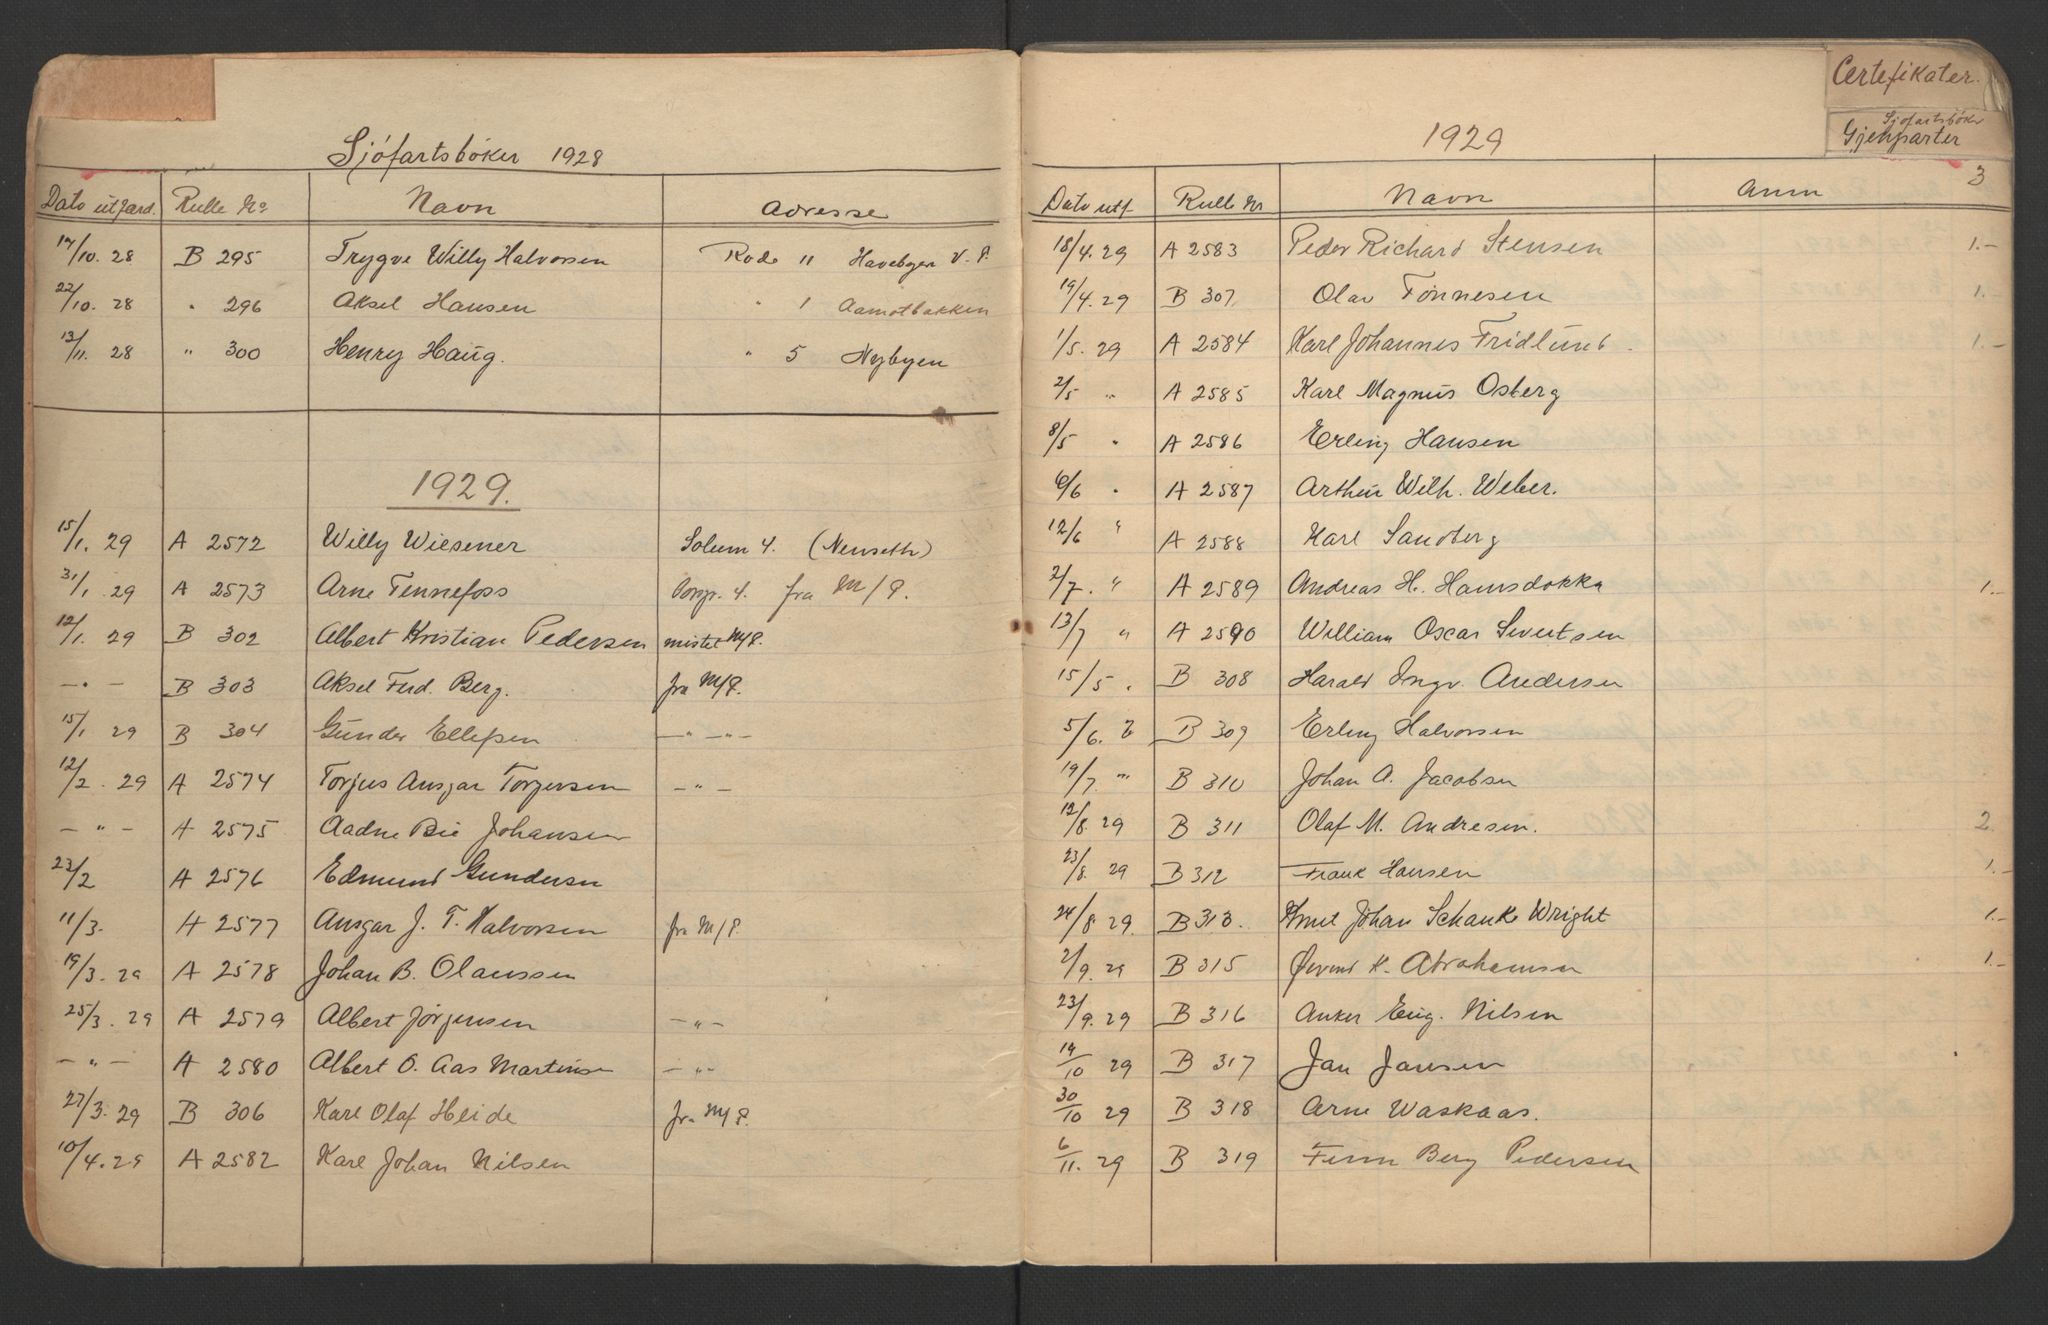 Sjöfartsböker 1928
Dato utfærd. Rulle No Navn Adresse
17/10. 28 B 295 Trygve Willy Halvorsen Rode 11 Havebyen V. P.
22/10. 28 " 296 Aksel Hansen " 1 Aamotbakken
13/11. 28 " 300 Henry Haug. " 5 Nybyen
1929.
15/1. 29 A 2572 Willy Wiesener Solum 4. (Nenseth)
31/1. 29 A 2573 Arne Tennefoss 4. fra M/P.
12/1. 29 B 302 Albert Kristian Pedersen mistet M/P.
— " — B 303 Aksel Ferd. Berg. fra M/P.
15/1 29 B 304 Gunder Ellefsen — " — " —
12/2. 29 A 2574 Torjus Ansgar Torjersen — " —
— " — A 2575 Aadne Bie Johansen
23/2 A 2576 Edmund Gundersen
11/3. A 2577 Ansgar J. T. Halvorsen fra M/P.
19/3. 29 A 2578 Johan B. Olaussen
25/3. 29 A 2579 Albert Jörgensen — " —
— " — A 2580 Albert O. Aas Martinsen — " —
27/3. 29 B 306 Karl Olaf Heide fra M/P.
10/4. 29 A 2582 Karl Johan Nilsen
Certefikater.
Sjöfartsböker
Gjenparter
1929
3
Dato utf Rulle Nr Navn Anm
18/4. 29 A 2583 Peder Richard Stensen 1.-
19/4. 29 B 307 Olav Tönnesen 1.-
1/5. 29 A 2584 Karl Johannes Fridlund 1.-
2/5 " A 2585 Karl Magnus Osberg
8/5 " A 2586 Erling Hansen
6/6 " A 2587 Arthur Wilh. Weber.
12/6 " A 2588 Karl Sandberg
2/7. " A 2589 Andreas H. Hamsdokka 1.-
13/7 " A 2590 William Oscar Sivertsen
15/5 " B 308 Harald Ingv. Andersen
5/6. " B 309 Erling Halvorsen
19/7. " B 310 Johan A. Jacobsen
12/8. 29 B 311 Olaf M. Andresen. 2.
23/8. 29 B 312 Frank Hansen 1.-
24/8 29. B 313. Knut Johan Schanke Wright 1.-
2/9. 29 B 315 Øivind K. Abrahamsen 1.-
23/9. 29 B 316 Anker Eug. Nilsen
19/10 29 B 317 Jan Jansen
30/10 29 B 318 Arne Waskaas.
6/11. 29 B 319 Finn Berg Pedersen